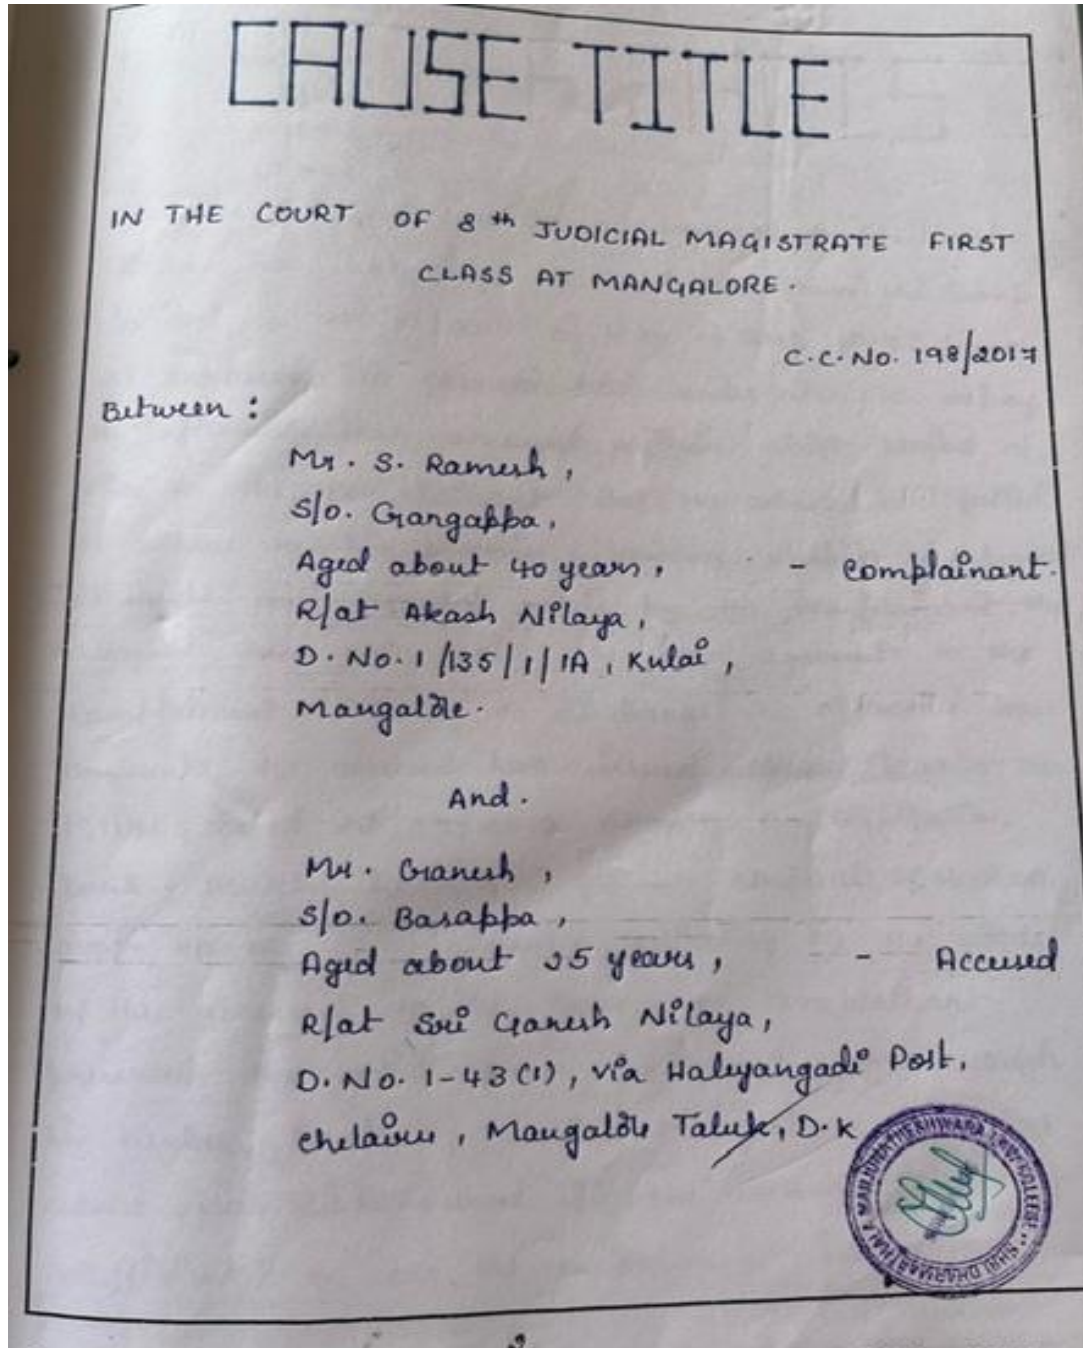 CAUSE TITLE
IN THE COURT OF 8th JUDICIAL MAGISTRATE FIRST
CLASS AT MANGALORE.
C.C.No. 198/2017
Between :
Mr. S. Ramesh,
S/o. Gangappa,
Aged about 40 years, - Complainant.
R/at Akash Nilaya,
D.No.1/135/1/1A, Kulai,
Mangalore.
And.
Mr. Ganesh,
S/o. Basappa,
Aged about 25 years, - Accused
R/at Sri Ganesh Nilaya,
D.No. 1-43(1), via Haleyangadi Post,
Chelairu, Mangalore Taluk, D.K
SHRI DHARMASTHALA MANJUNATHESHWARA LAW COLLEGE